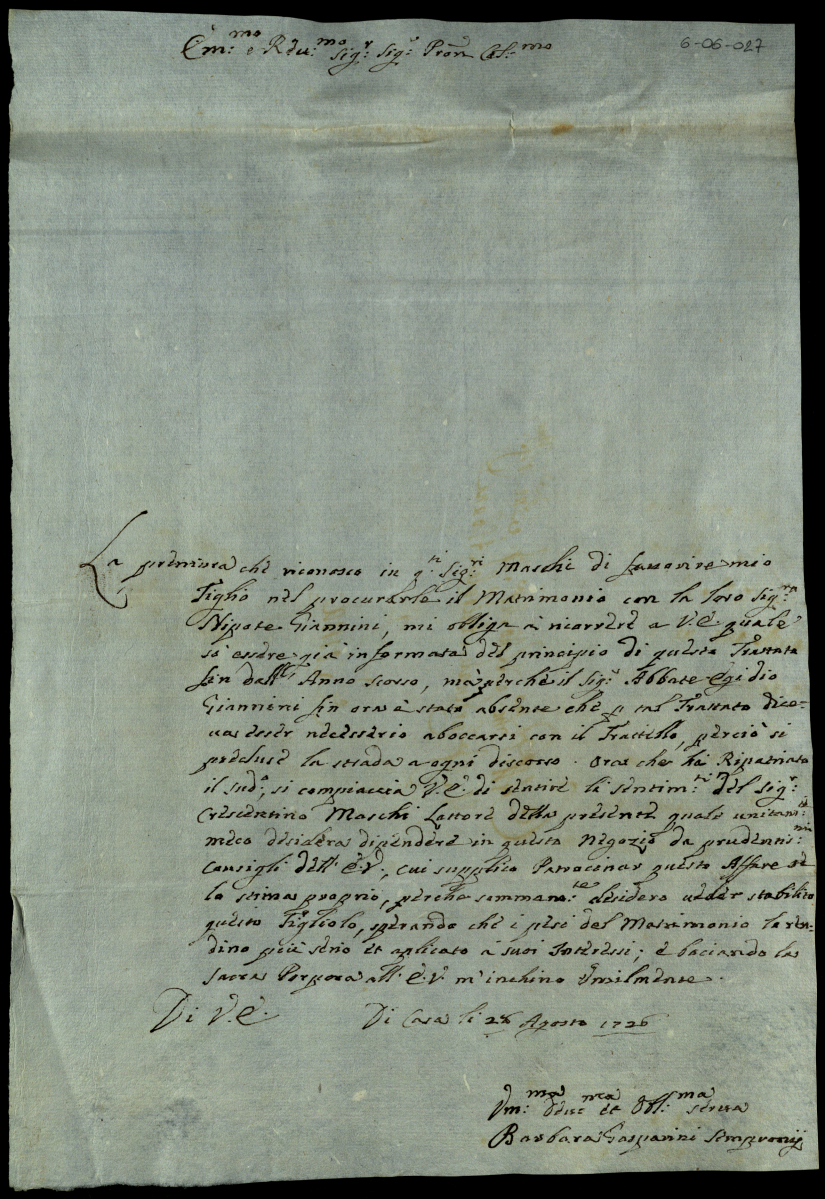 6-06-027
Em:mo e Rdu:mo Sig:r Sig:r Pron Col:mo
La premura che riconosco in q:ti Sig:ri Maschi di favorire mio
Figlio nel procurarle il Matrimonio con la loro Sig:ra
Nipote Giannini, mi obliga à ricorrere a V.E. quale
sò essere già informata del principio di questo Trattato
sin dall' Anno scorso, mà perche il Sig:r Abbate Egidio
Giannini sin ora è stato absente che p tal Trattato dice-
va esser necessario aboccarsi con il Fratello, perciò si
precluse la strada a ogni discorso. Ora che hà Ripatriato
il sud:o, si compiaccia V.E. di sentire li sentim:ti del Sig:r
Crescentino Maschi Lattore della presente quale unitam:te
meco desidera dipendere in questo Negozio da prudentis:mi
Consigli dell' E.V., cui supplico Patrocinar questo Affare
la stima proprio, perche sommam:te desidero veder stabilito
questo Figliolo, sperando che i pesi del Matrimonio la ren-
dino più serio et aplicato à suoi Interessi; e baciando la
Sacra Porpora all' E.V. m'inchino Umilmente.
Di V.E. Di Casa li 28 Agosto 1726
Um:ma Deu:ma et Obl:ma serva
Barbara Gasparini Sempronij